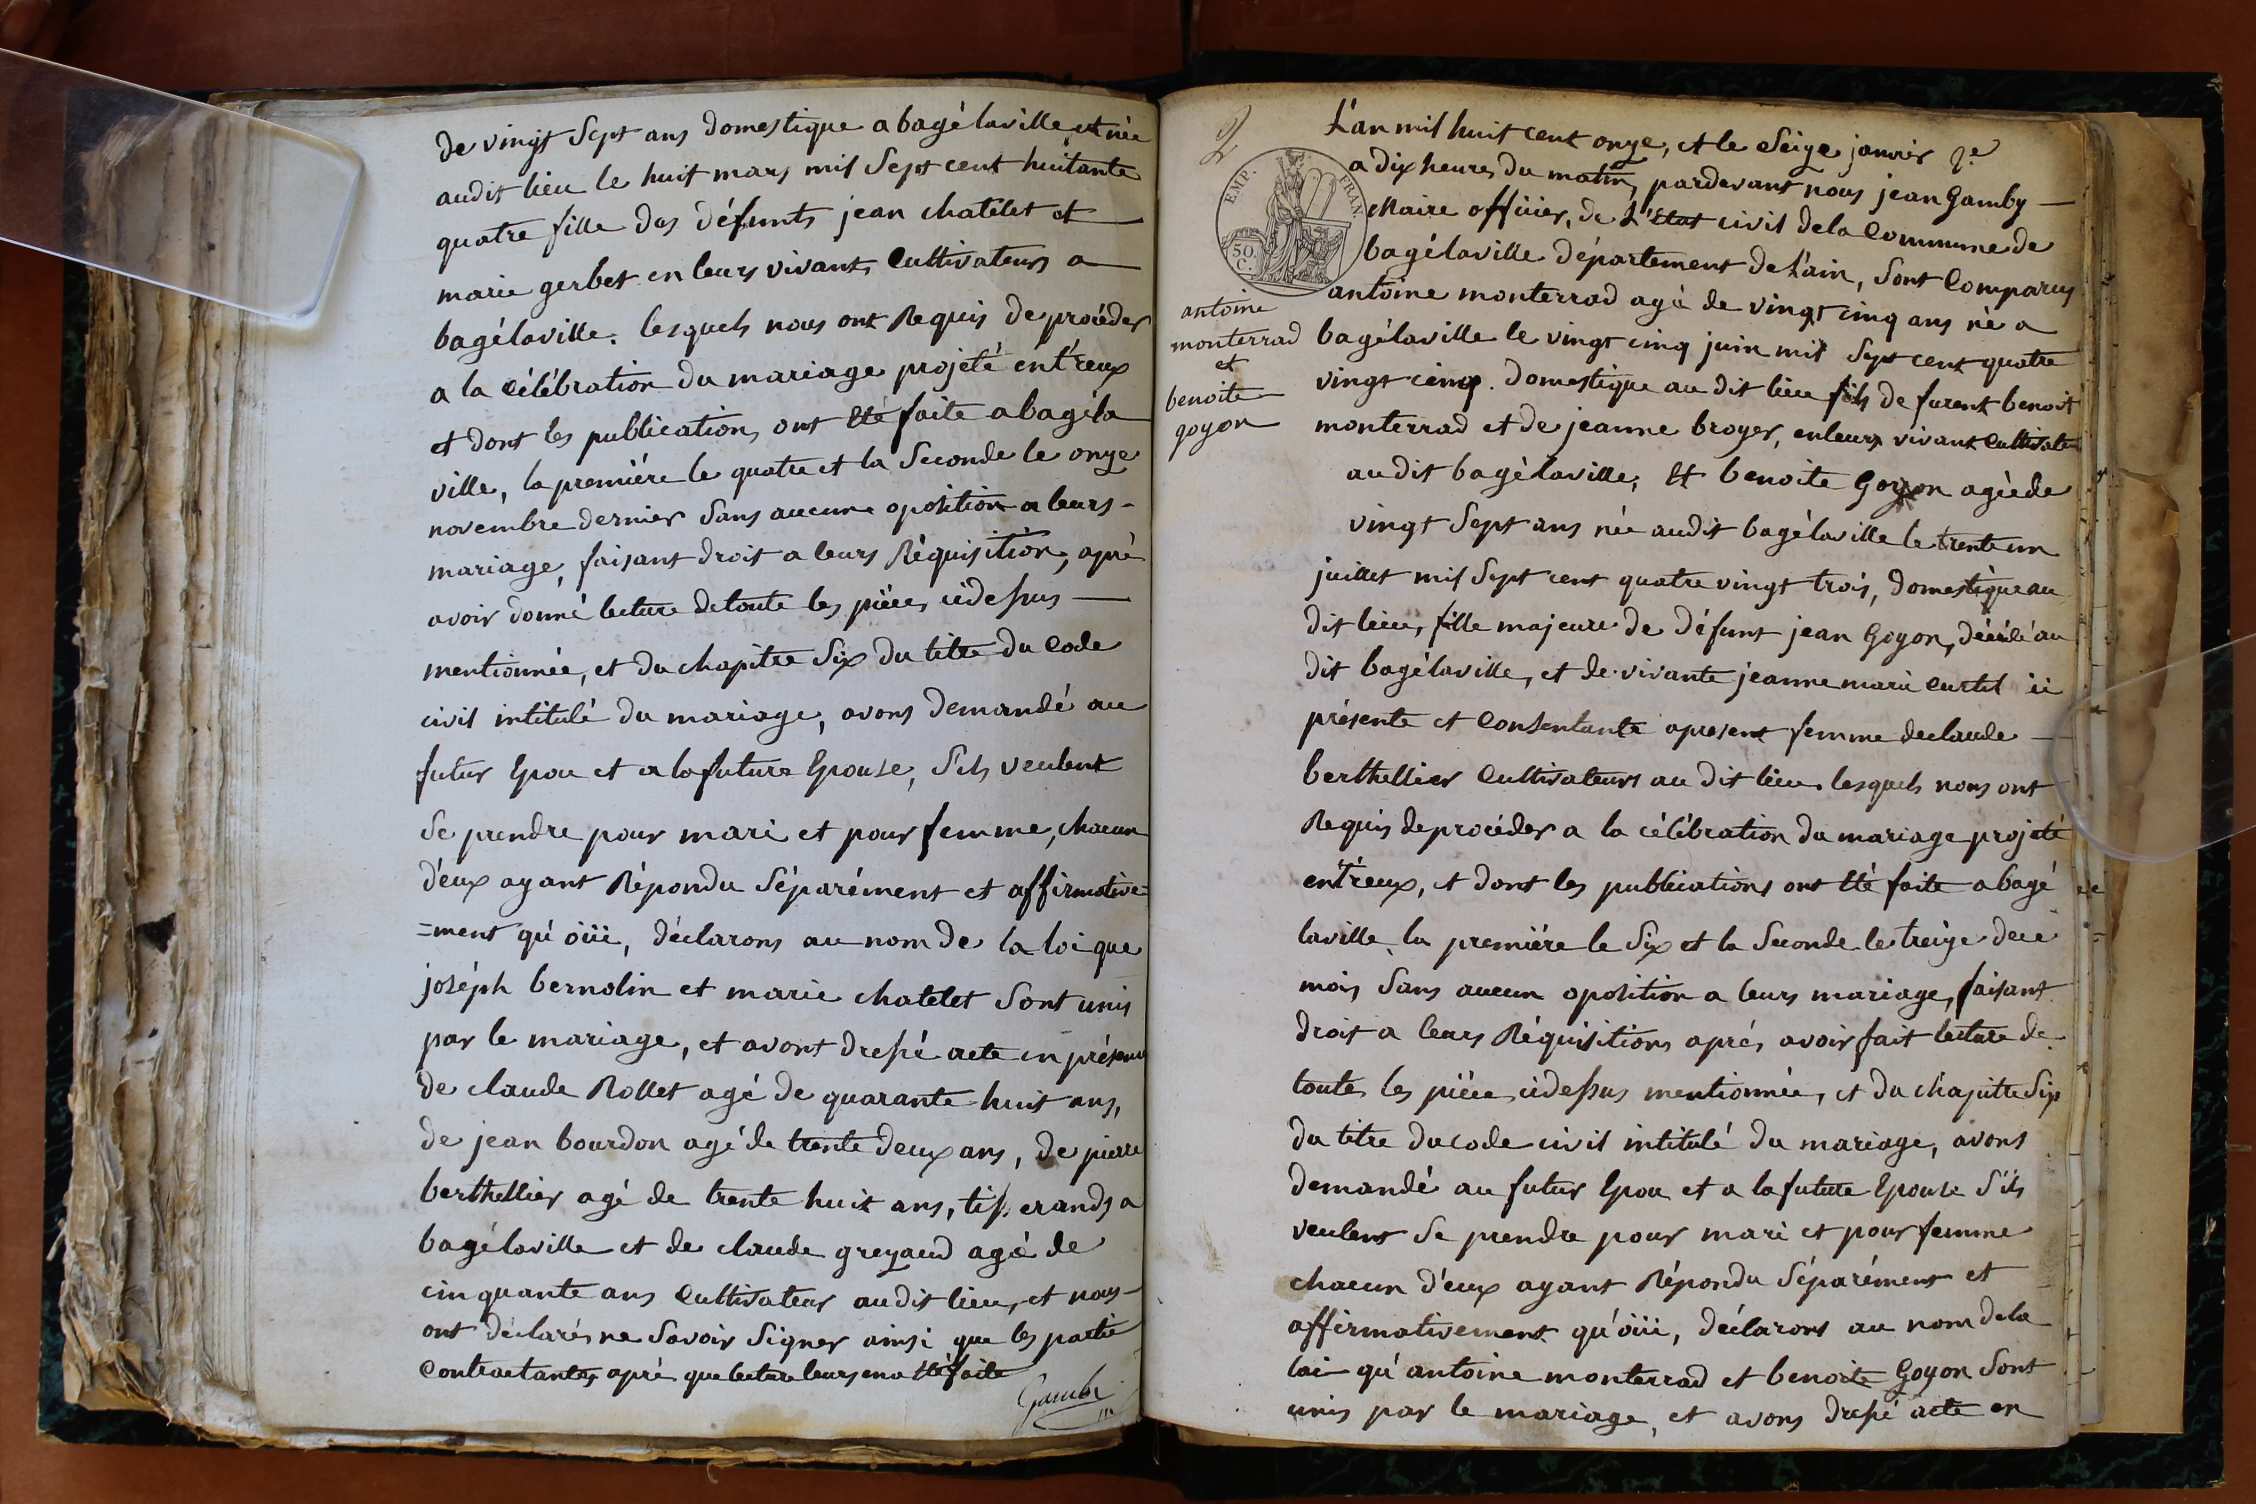 de vingt Sept ans domestique a bagélaville et née
audit lieu le huit mars mil Sept cent huitante
quatre fille des défunts jean chatelet et
marie gerbet en leurs vivants Cultivateurs a
bagélaville. lesquels nous ont Requis de procéder
a la célébration du mariage projeté entr'eux
et dont les publications ont été faite a bagéla
ville, la premiére le quatre et la Seconde le onze
novembre dernier Sans aucune oposition a leurs -
mariage, faisant droit a leurs Réquisition, aprè
avoir donné lecture de toute les piéces cidessus
mentionnée, et du chapitre Six du titre du Code
civil intitulé du mariage, avons demandé au
futur Epou et a la future Epouse, S'ils veulent
Se prendre pour mari et pour femme, chacun
d'eux ayant Répondu Séparément et affirmative=
=ment qu'oüi, déclarons au nom de la loi que
joséph bernolin et marie chatelet Sont unis
par le mariage, et avons dressé acte en présence
de claude Rollet agé de quarante huit ans,
de jean bourdon agé de trente deux ans, de pierre
berthellier agé de trente huit ans, tisserands a
bagélaville et de claude greyaud agé de
cinquante ans Cultivateur audit lieu, et nous -
ont déclarés ne Savoir Signer ainsi que les partie
Contractantes aprè que lecture leurs en a été faite
Gambi
2
EMP. FRAN.
50 C.
antoine
monterrad
et
benoite
goyon
L'an mil huit cent onze, et le Seize janvier
a dix heures du matin, pardevant nous jean Gamby
Maire officier, de L'état civil de la Commune de
bagélaville département de L'ain, Sont Comparus
antoine monterrad agé de vingt cinq ans né a
bagélaville le vingt cinq juin mil Sept cent quatre
vingt cinq. domestique au dit lieu fils de furent benoit
monterrad et de jeanne broyer, en leurs vivant Cultivate
au dit bagélaville, et benoite Goyon agée de
vingt Sept ans née audit bagélaville le trente un
juillet mil Sept cent quatre vingt trois, domestique au
dit lieu, fille majeure de défunt jean Goyon, décédé au
dit bagélaville, et de vivante jeanne marie curtil ici
présente et Consentante apresent femme de claude
berthellier Cultivateurs au dit lieu. lesquels nous ont
Requis de procéder a la célébration du mariage projeté
entr'eux, et dont les publications ont été faite a bagé
laville, la premiére le Six et la Seconde le treize de ce
mois Sans aucun oposition a leurs mariage, faisant
droit a leurs Réquisitions aprés avoir fait lecture de
toute les piéce cidessus mentionnée, et du chapitre Six
du titre du code civil intitulé du mariage, avons
demandé au futur Epou et a la future Epouse S'ils
veulent Se prendre pour mari et pour femme
chacun d'eux ayant Répondu Séparément et
affirmativement qu'oüi, déclarons au nom de la
loi qu'antoine monterrad et benoite Goyon Sont
unis par le mariage, et avons dressé acte en